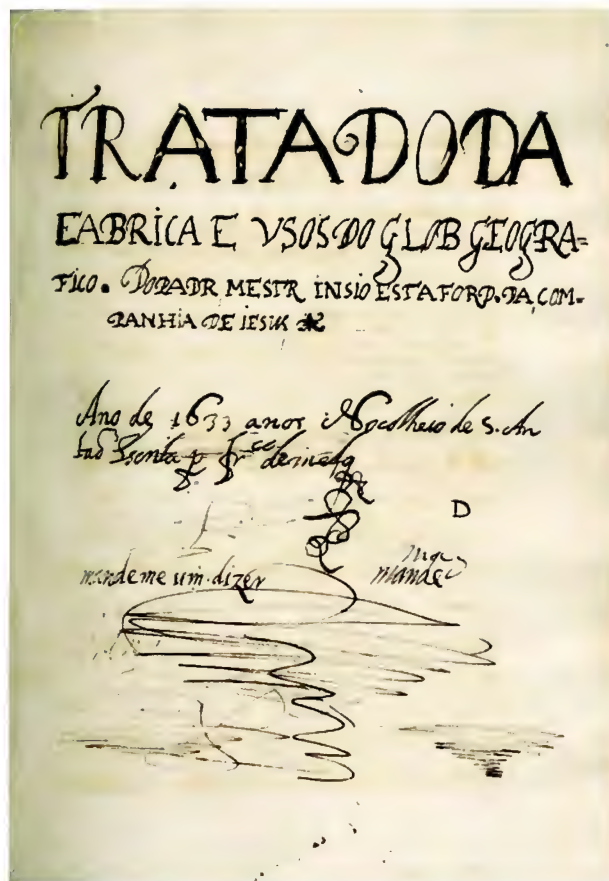 TRATADO DA
FABRICA E VSOS DO GLOB GEOGRA=
FICO. DO PADR MESTR INSIO ESTAFORD. DA COM-
PANHIA DE IESUS
Ano de 1633 anos No colheio de S. An
taõ Escrita p Frco de melo
D
mandeme um. dizer
mande